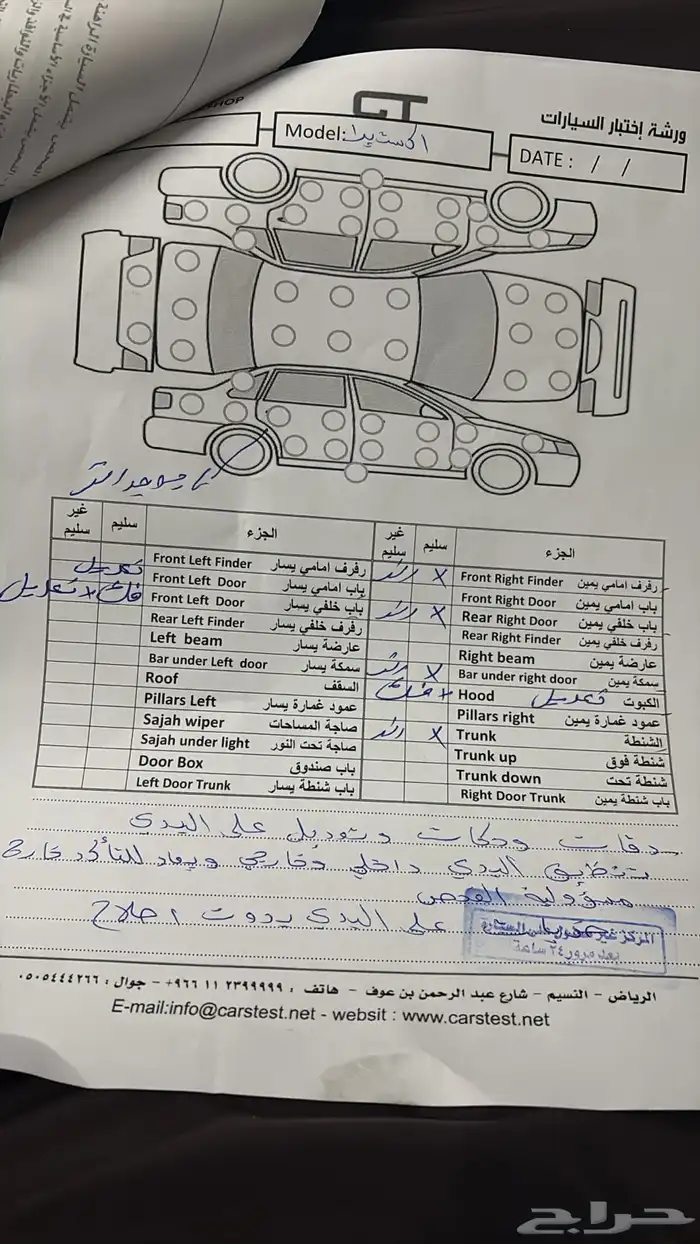 SHOP
GT
ورشة إختبار السيارات
Model:
DATE : / /
الجزء سليم غير سليم الجزء سليم غير سليم
Front Right Finder رفرف امامي يمين X رش Front Left Finder رفرف امامي يسار
Front Right Door باب امامي يمين Front Left Door باب امامي يسار تعديل
Rear Right Door باب خلفي يمين X رش Front Left Door باب خلفي يسار فك + تعديل
Rear Right Finder رفرف خلفي يمين Rear Left Finder رفرف خلفي يسار
Right beam عارضة يمين Left beam عارضة يسار
Bar under right door سمكة يمين X رش Bar under Left door سمكة يسار
Hood الكبوت تعديل + فك Roof السقف
Pillars right عمود غمارة يمين Pillars Left عمود غمارة يسار
Trunk الشنطة X رش Sajah wiper صاجة المساحات
Trunk up شنطة فوق Sajah under light صاجة تحت النور
Trunk down شنطة تحت Door Box باب صندوق
Right Door Trunk باب شنطة يمين Left Door Trunk باب شنطة يسار
دقات وحكات وتعديل على البدي
تنظيف البدي داخلي وخارجي ويعاد للتأكد خارج
مسؤولية الفحص
على البدي بدون اصلاح
المركز غير مسؤول عن السيارة
بعد مرور ٢٤ ساعة
الرياض - النسيم - شارع عبد الرحمن بن عوف - هاتف : ٢٣٩٩٩٩٩ ١١ ٩٦٦+ - جوال : ٠٥٠٥٤٤٤٢٦٦
E-mail:info@carstest.net - websit : www.carstest.net
حراج